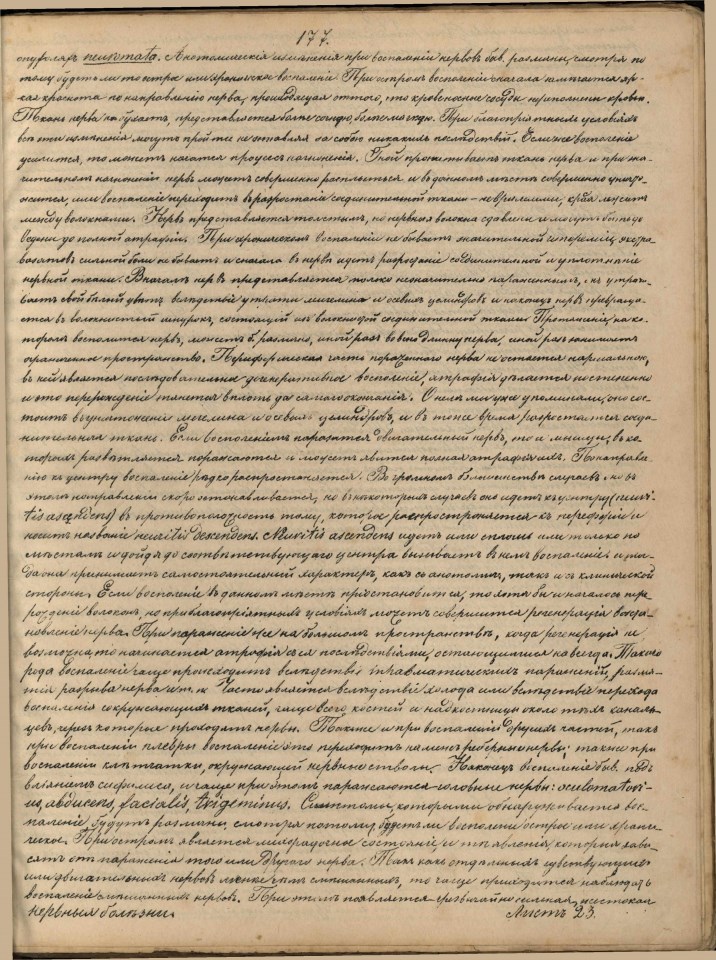 177.
neuromata. Анатомическія измѣненія при воспаленіи нервовъ быв. различны, смотря по
тому будетъ ли то острое или хроническое воспаленіе. При остромъ воспаленіи сначала замѣчается яр-
кая краснота по направленію нерва, происходящая оттого, что кровеносные сосуды переполнены кровью.
Ткань нерва набухаетъ, представляется болѣе сочною, болѣе мягкою. При благопріятныхъ условіяхъ
всѣ эти измѣненія могутъ пройти не оставляя за собою никакихъ послѣдствій. Если же воспаленіе
усилится, то можетъ начатся процесъ нагноенія. Гной пропитываетъ ткань нерва и при зна-
чительномъ нагноеніи нервъ можетъ совершенно расплыться и въ данномъ мѣстѣ совершенно уничто-
жится, или воспаленіе переходитъ въ разростаніе соединительной ткани
между волокнами. Нервъ представляется толстымъ, но нервныя волокна сдавлены и могутъ быть до-
ведены до полной атрафіи. При хроническомъ воспаленіи не бываетъ значительной гипереміи, экстра-
вазатовъ сильной боли не бываетъ и сначала въ нервѣ идетъ разрощеніе соединительной и уплотненіе
нервной ткани. Вначалѣ нервъ представляется только незначительно пораженнымъ,
свой бѣлый цвѣтъ вслѣдствіе утраты міелина и осевыхъ цилиндровъ и наконецъ нервъ превраща-
ется въ волокнистый шнурокъ, состоящій изъ волокнистой соединительной ткани. Протяженіе, на ко-
торомъ воспалится нервъ, можетъ б. различно, иной разъ во всю длинну нерва, иной разъ занимаетъ
ограниченное пространство. Периферическая часть пораженнаго нерва не остается нармальною,
въ ней является послѣдовательное дегенеративное воспаленіе, атрафія дѣлается постепенно
и это перерожденіе тянется вплоть до самаго окончанія. О ней мы уже упоминали, она сос-
тоитъ въ уничтоженіи міелина и осевыхъ цилиндровъ, и въ тоже время разростается соеди-
нительная ткань. Если воспаленіемъ поразится двигательный нервъ, то и мышцы, въ ко-
торыхъ развѣтвляется поражаются и можетъ явится полная атрафія ихъ. По направле-
нію къ центру воспаленіе рѣдко распространяется. Въ громномъ большинствѣ случаевъ оно въ
этомъ направленіи скоро останавливается, но въ нѣкоторыхъ случаяхъ оно идетъ къ центру (neuri-
tis ascendens) въ противоположность тому, которое распространяется къ переферіи и
носитъ названіе neuritis descendens. Neuritis ascendens идетъ или сплошь или только по
мѣстамъ и дойдя до соотвѣтствующаго центра вызываетъ въ немъ воспаленіе и тог-
да она принимаетъ самостоятельный характеръ, какъ съ анатомич., такъ и съ клинической
стороны. Если воспаленіе въ данномъ мѣстѣ пріостановится, то хотя бы и началось пере-
рожденіе волоконъ, но при благопріятныхъ условіяхъ можетъ совершится регенерація возста-
новленіе нерва. При параженіи же на большомъ пространствѣ, когда регенерація не
возможна, то начинается атрафія съ ея послѣдствіями, остающимися навсегда. Такого
рода воспаленіе чаще происходитъ вслѣдствіе травматическихъ параженій,
разрыва нерва и т. п. Часто является вслѣдствіе холода или вслѣдствіе перехода
воспаленія съ окружающихъ тканей, чаще всего костей и надкостницы около тѣхъ каналь-
цевъ, чрезъ которые проходятъ нервы. Также и при воспаленіи другихъ частей, такъ
при воспаленіи плевры воспаленіе это переходитъ на межреберные нервы; также при
воспаленіи клѣтчатки, окружающей нервные стволы. Наконецъ воспаленіе быв. подъ
вліяніемъ сифилиса, и чаще при этомъ паражаются головные нервы: oculomotori-
us, abducens, facialis, trigeminus. Симптомы, которыми обнаруживается вос-
паленіе будутъ различны, смотря потому, будетъ ли воспаленіе острое или хрони-
ческое. При остромъ является лихорадочное состояніе и тѣ явленія, которыя зави-
сятъ отъ параженія того или другого нерва. Такъ какъ отдѣльныхъ чувствующихъ
или двигательныхъ нервовъ менѣе чѣмъ смѣшанныхъ, то чаще приходится наблюдать
воспаленіе смѣшанныхъ нервовъ. При этомъ появляется чрезвычайно сильная, жестокая
Нервныя болѣзни. Листъ 23.